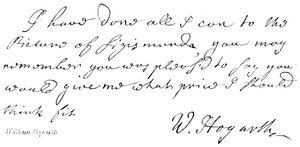 I have done all I can to the
Picture of Sigismunda, you may
remember you was pleas'd to say you
would give me what price I should
think fit
W. Hogarth
William Hogarth